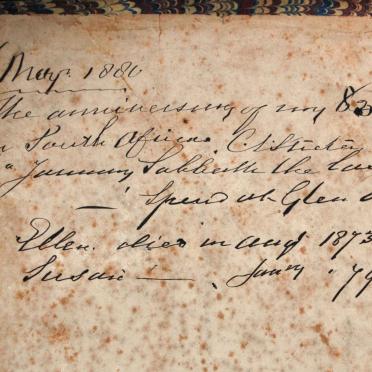 May. 1880
The anniversary of my 83
South Africa. C. Stuckey
January Sabbath the
— Spend at Glen
Ellen. died in Aug 1873
Susan — Jany. 79